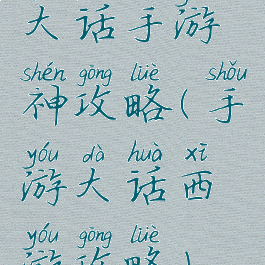 大话手游
shén gōng lüè shǒu
神攻略(手
yóu dà huà xī
游大话西
yóu gōng lüè
游攻略)